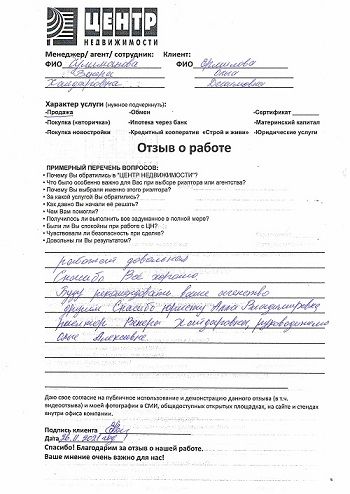 ЦЕНТР
НЕДВИЖИМОСТИ
Менеджер/ агент/ сотрудник: Клиент:
ФИО ФИО Ермилова
Венера Ольга
Хайдаровна
Характер услуги (нужное подчеркнуть):
-Продажа -Обмен -Сертификат
-Покупка («вторичка») -Ипотека через банк -Материнский капитал
-Покупка новостройки -Кредитный кооператив «Строй и живи» -Юридические услуги
Отзыв о работе
ПРИМЕРНЫЙ ПЕРЕЧЕНЬ ВОПРОСОВ:
• Почему Вы обратились в "ЦЕНТР НЕДВИЖИМОСТИ"?
• Что было особенно важно для Вас при выборе риэлтора или агентства?
• Почему Вы выбрали именно этого риэлтора?
• За какой услугой Вы обратились?
• Как давно Вы начали её решать?
• Чем Вам помогли?
• Получилось ли выполнить все задуманное в полной мере?
• Были ли Вы спокойны при работе с ЦН?
• Чувствовали ли безопасность при сделке?
• Довольны ли Вы результатом?
работой довольная
Спасибо Все хорошо
Буду рекомендовать ваше агенство
другим Спасибо юристу Анна Владимировна
риэлтор Венеры Хайдаровны, руководителю
Алексевне.
Даю свое согласие на публичное использование и демонстрацию данного отзыва (в т.ч.
видеоотзыва) и моей фотографии в СМИ, общедоступных открытых площадках, на сайте и стендах
внутри офиса компании.
Подпись клиента
Дата 26.11.2021 год
Спасибо! Благодарим за отзыв о нашей работе.
Ваше мнение очень важно для нас!